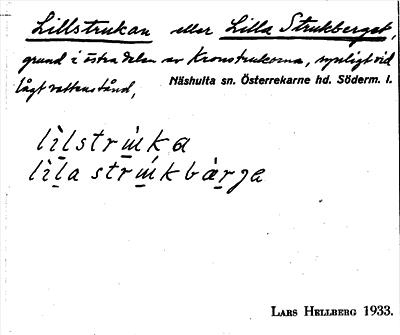 Lillstrukan eller Lilla Strukberget,
grund i östra delen av Kronstrukorna, synligt vid
lågt vattenstånd,
Näshulta sn. Österrekarne hd. Söderm. l.
lìlstrɯ̀ka
lìla strɯ́kbàrjə
LARS HELLBERG 1933.